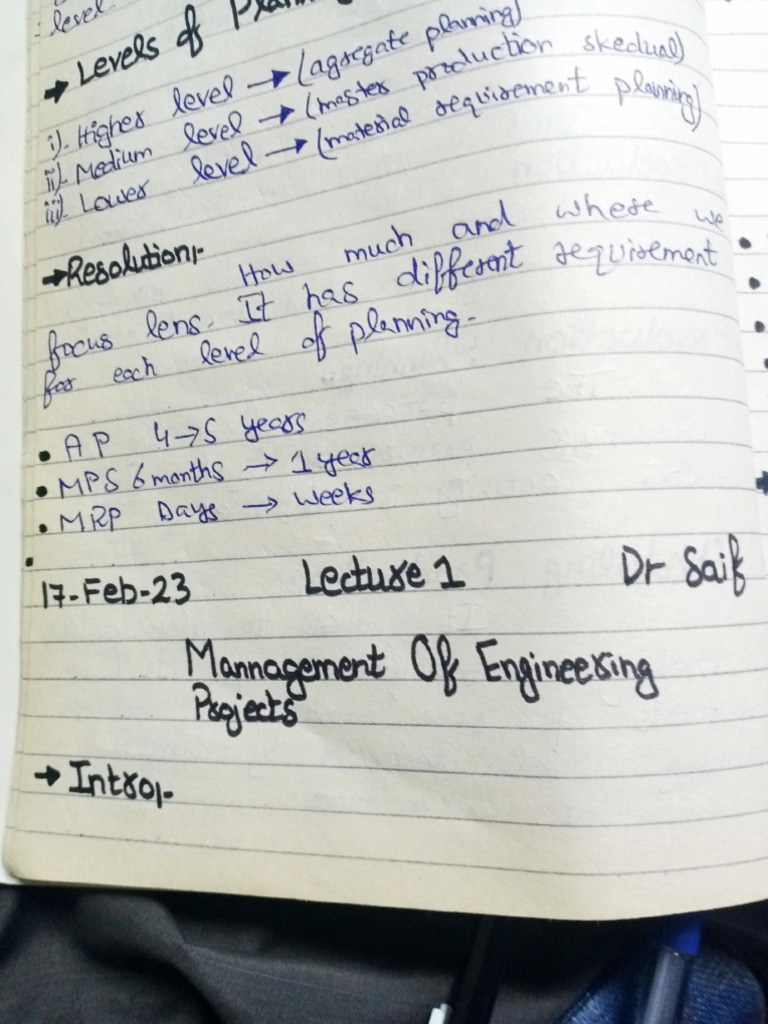 level.
→ Levels of
i). Higher level → (agregate planning)
ii). Medium level → (master production skedual)
iii). Lower level → (material requirement planning)
→ Resolution:-
How much and where we
focus lens. It has different requirement
for each level of planning.
• AP 4→5 years
• MPS 6 months → 1 year
• MRP Days → weeks
17-Feb-23 Lecture 1 Dr Saif
Mannagement Of Engineering
Projects
→ Intro:-